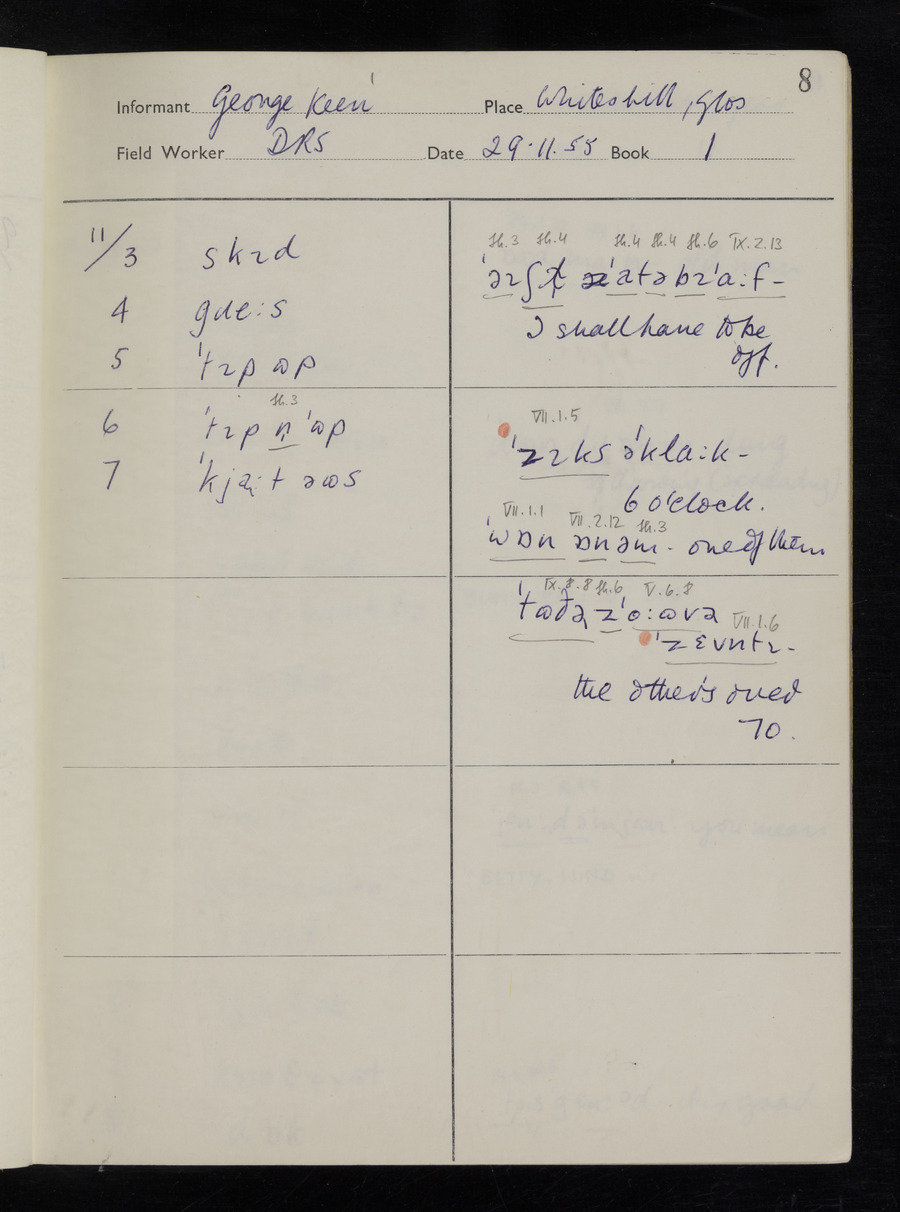 8
Informant George Keen Place Whiteshill, Glos
Field Worker DRS Date 29.11.55 Book 1
11/3 skɪd
4
5 ˈtɪp ɷp
sh.3
6 ˈtɪp n̩ ˈɷp
7
sh.3 sh.4 sh.4 sh.4 sh.6 IX.2.13
I shall have to be
off.
VII.1.5
ˈzɪks əklɑ:k -
6 o'clock.
VII.1.1 VII.2.12 sh.3
ˈwɒn ɒnəm - one of them
IX.8.8 sh.6 V.6.8
VII.1.6
ˈzɛvntɪ -
the other's over
70.